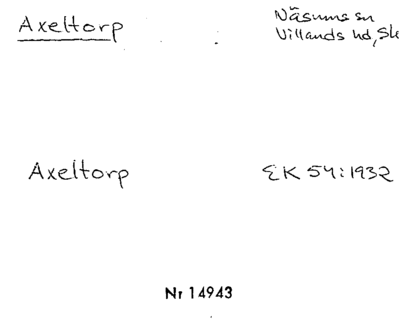 Axeltorp
Näsums sn
Villands hd, Sk
Axeltorp
EK 54:1932
Nr 14943